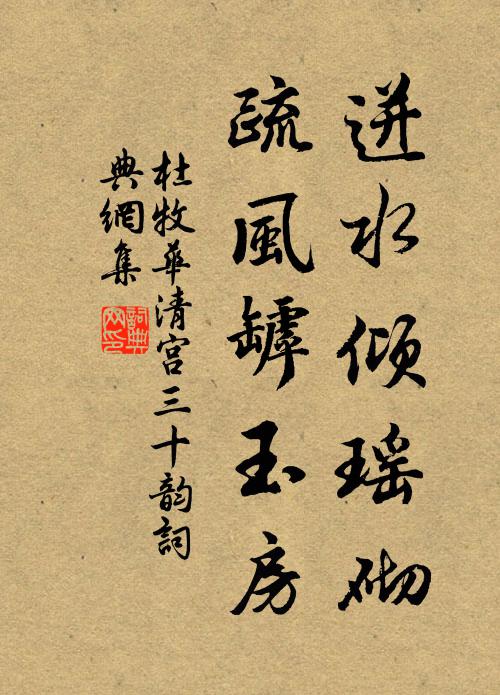 迸水傾瑶砌
疏風罅玉房
杜牧華清宫三十韵詞
典網集
詞典
网印